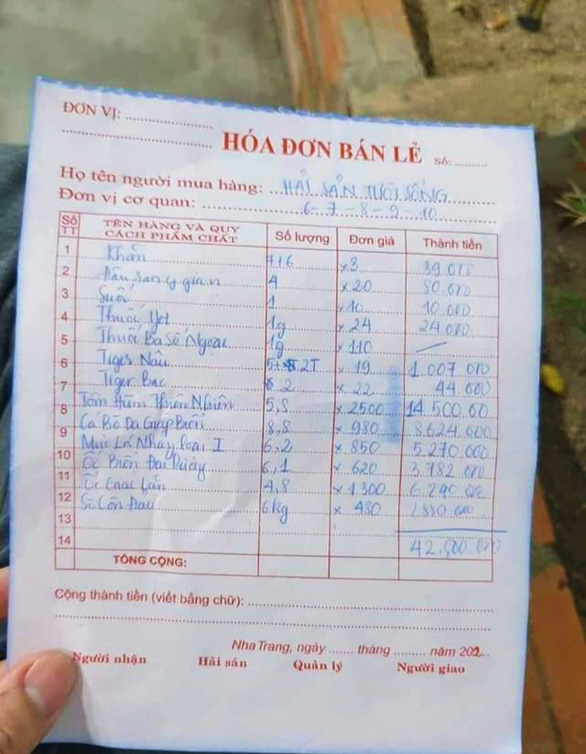 ĐƠN VỊ: ....................
HÓA ĐƠN BÁN LẺ Số: .........
Họ tên người mua hàng: HẢI SẢN TƯƠI SỐNG
Đơn vị cơ quan: 6-7-8-9-10
Số TT TÊN HÀNG VÀ QUY CÁCH PHẨM CHẤT Số lượng Đơn giá Thành tiền
1 Khăn 7+6 x3 39.000
2 4 x20 80.000
3 Suối 1 x10 10.000
4 Thuốc 1g x24 24.000
5 Thuốc Ba Số Ngoại 1g x110
6 Tiger Nâu 2T x 19 1.007 000
7 Tiger Bạc 2 x 22 44 000
8 Tôm Hùm Thiên Nhiên 5,8 x 2500 14.500.00
9 Cá Bò Da Giáp Biển 8,8 x 980 8.624.000
10 Loại I 6,2 x 850 5.270.000
11 Ốc Biển Đại Dương 6,1 x 620 3.782.000
12 Ốc Giác Lằn 4,8 x 1300 6.240.000
13 Sò Côn Đảo 6kg x 480 2.880.000
14 42.500.000
TỔNG CỘNG:
Cộng thành tiền (viết bằng chữ): ....................
Nha Trang, ngày ....... tháng ......... năm 202...
Người nhận Hải sản Quản lý Người giao